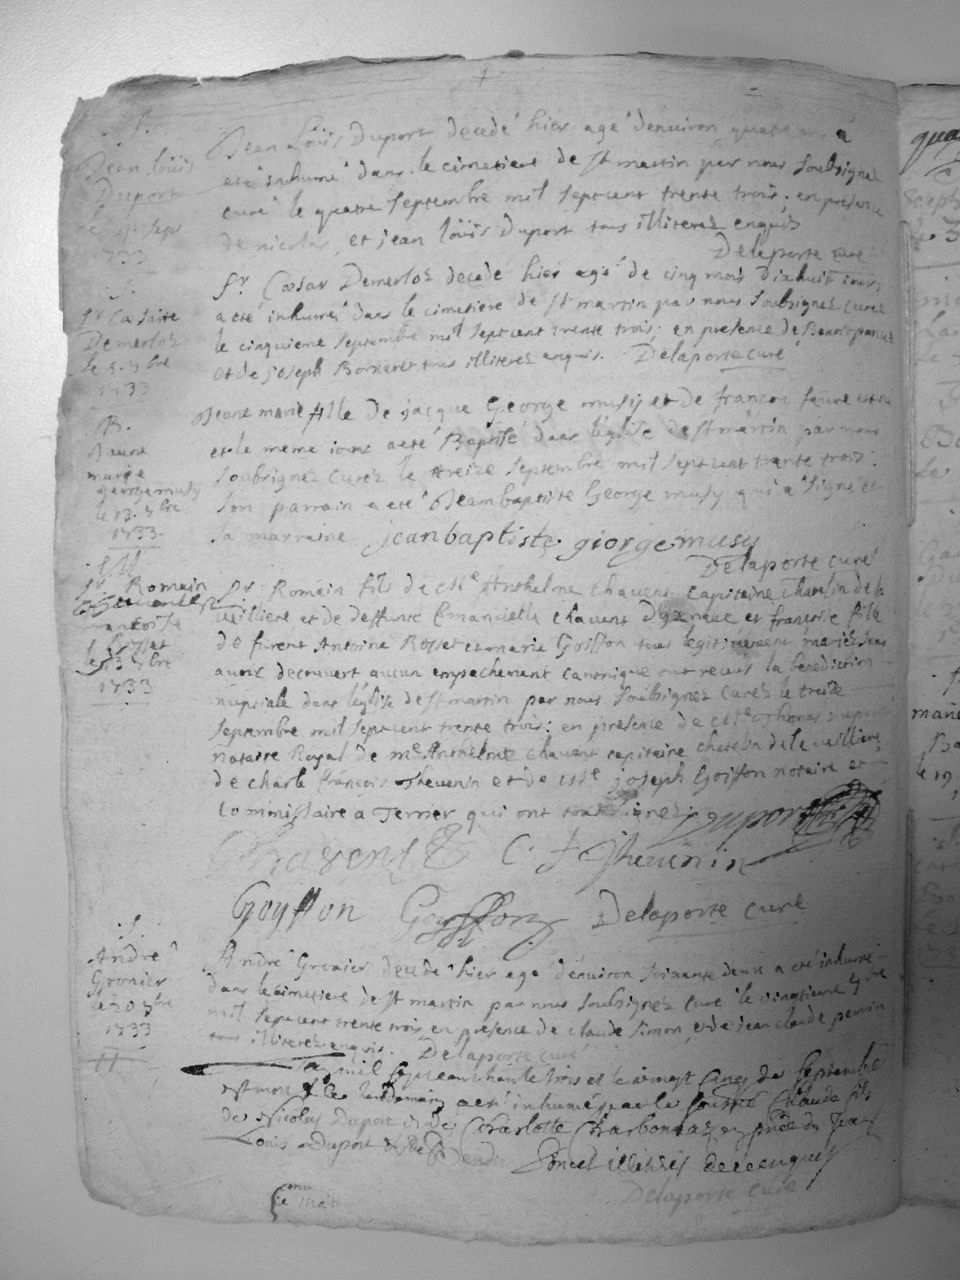 .S.
Jean Loüis
Duport
le 4e Sepr
1733
Jean Loüis Duport decedé hier agé d'environ quatre ans à
eté inhumé dans le cimetiere de st martin par nous soubsigné
curé le quatre septembre mil sept cent trente trois. en présence
de nicolas et jean loüis Duport tous illiteres enquis
Delaporte curé
.S.
Sr Cæsar
Demerloz
le 5. 7bre
1733
Sr Cæsar Demerloz decedé hier agé de cinq mois dixhuit jours
a eté inhumé dans le cimetiere de st martin par nous soubsignez curé
le cinquieme septembre mil sept cent trente trois: en présence de
et de joseph tous illiterez enquis. Delaporte curé
.B.
Jeane
marie
georgemusy
le 13. 7bre
1733
Jeane marie fille de jacque George musy et de françoi faure est né
et le meme jour a eté Baptisé dans léglise de st martin par nous
soubsignez curez le treize septembre mil sept cent trente trois:
son parrain a eté Jeambaptiste George musy qui a signé et
sa marraine jeanbaptiste giorgemusy
Delaporte curé
Sr Romain
antoi
Rosset
le 13 7bre
1733
Sr Romain fils de Me Anthelme Chavent capitaine Chatelin de la
veilliere et de deffunte Emanuelle chavent D'une et françoise fille
de furent Antoine Rosset et marie Goiffon tous legitimement mariés sans
avoir decouvert aucun empechement canonique ont receus la benediction
nupsiale dans léglise de st martin par nous soubsignez curéz le treize
septembre mil sept cent trente trois: en présence de Me Thomas Duport
notaire Royal de me Anthelme chavent capitaine chatelin de la veilliere
de charle françois Thevenin et de Me joseph Goiffon notaire et
commissaire a Terrier qui ont tous signez: Duport
Chavent C. f Thevenin
Goyffon Goyffon Delaporte curé
.S.
André
Gronier
le 20 7bre
1733
André Gronier decedé hier agé d'environ soixante deux a eté inhumé
dans le cimetiere de st martin par nous soubsignez curé le vingtieme 7bre
mil sept cent trente trois en présence de claude simon et de jean claude perrin
tous illiterez enquis. Delaporte curé
mil sept cent trente trois et le vingt cinq de septembre
est mort et le lendemain a eté inhumé par le soussigné Claude fils
de Nicolas Duport et de Charlotte Charbonnas en présence de Jean
Louis Duport et de illiterés de ce enquis
Delaporte curé